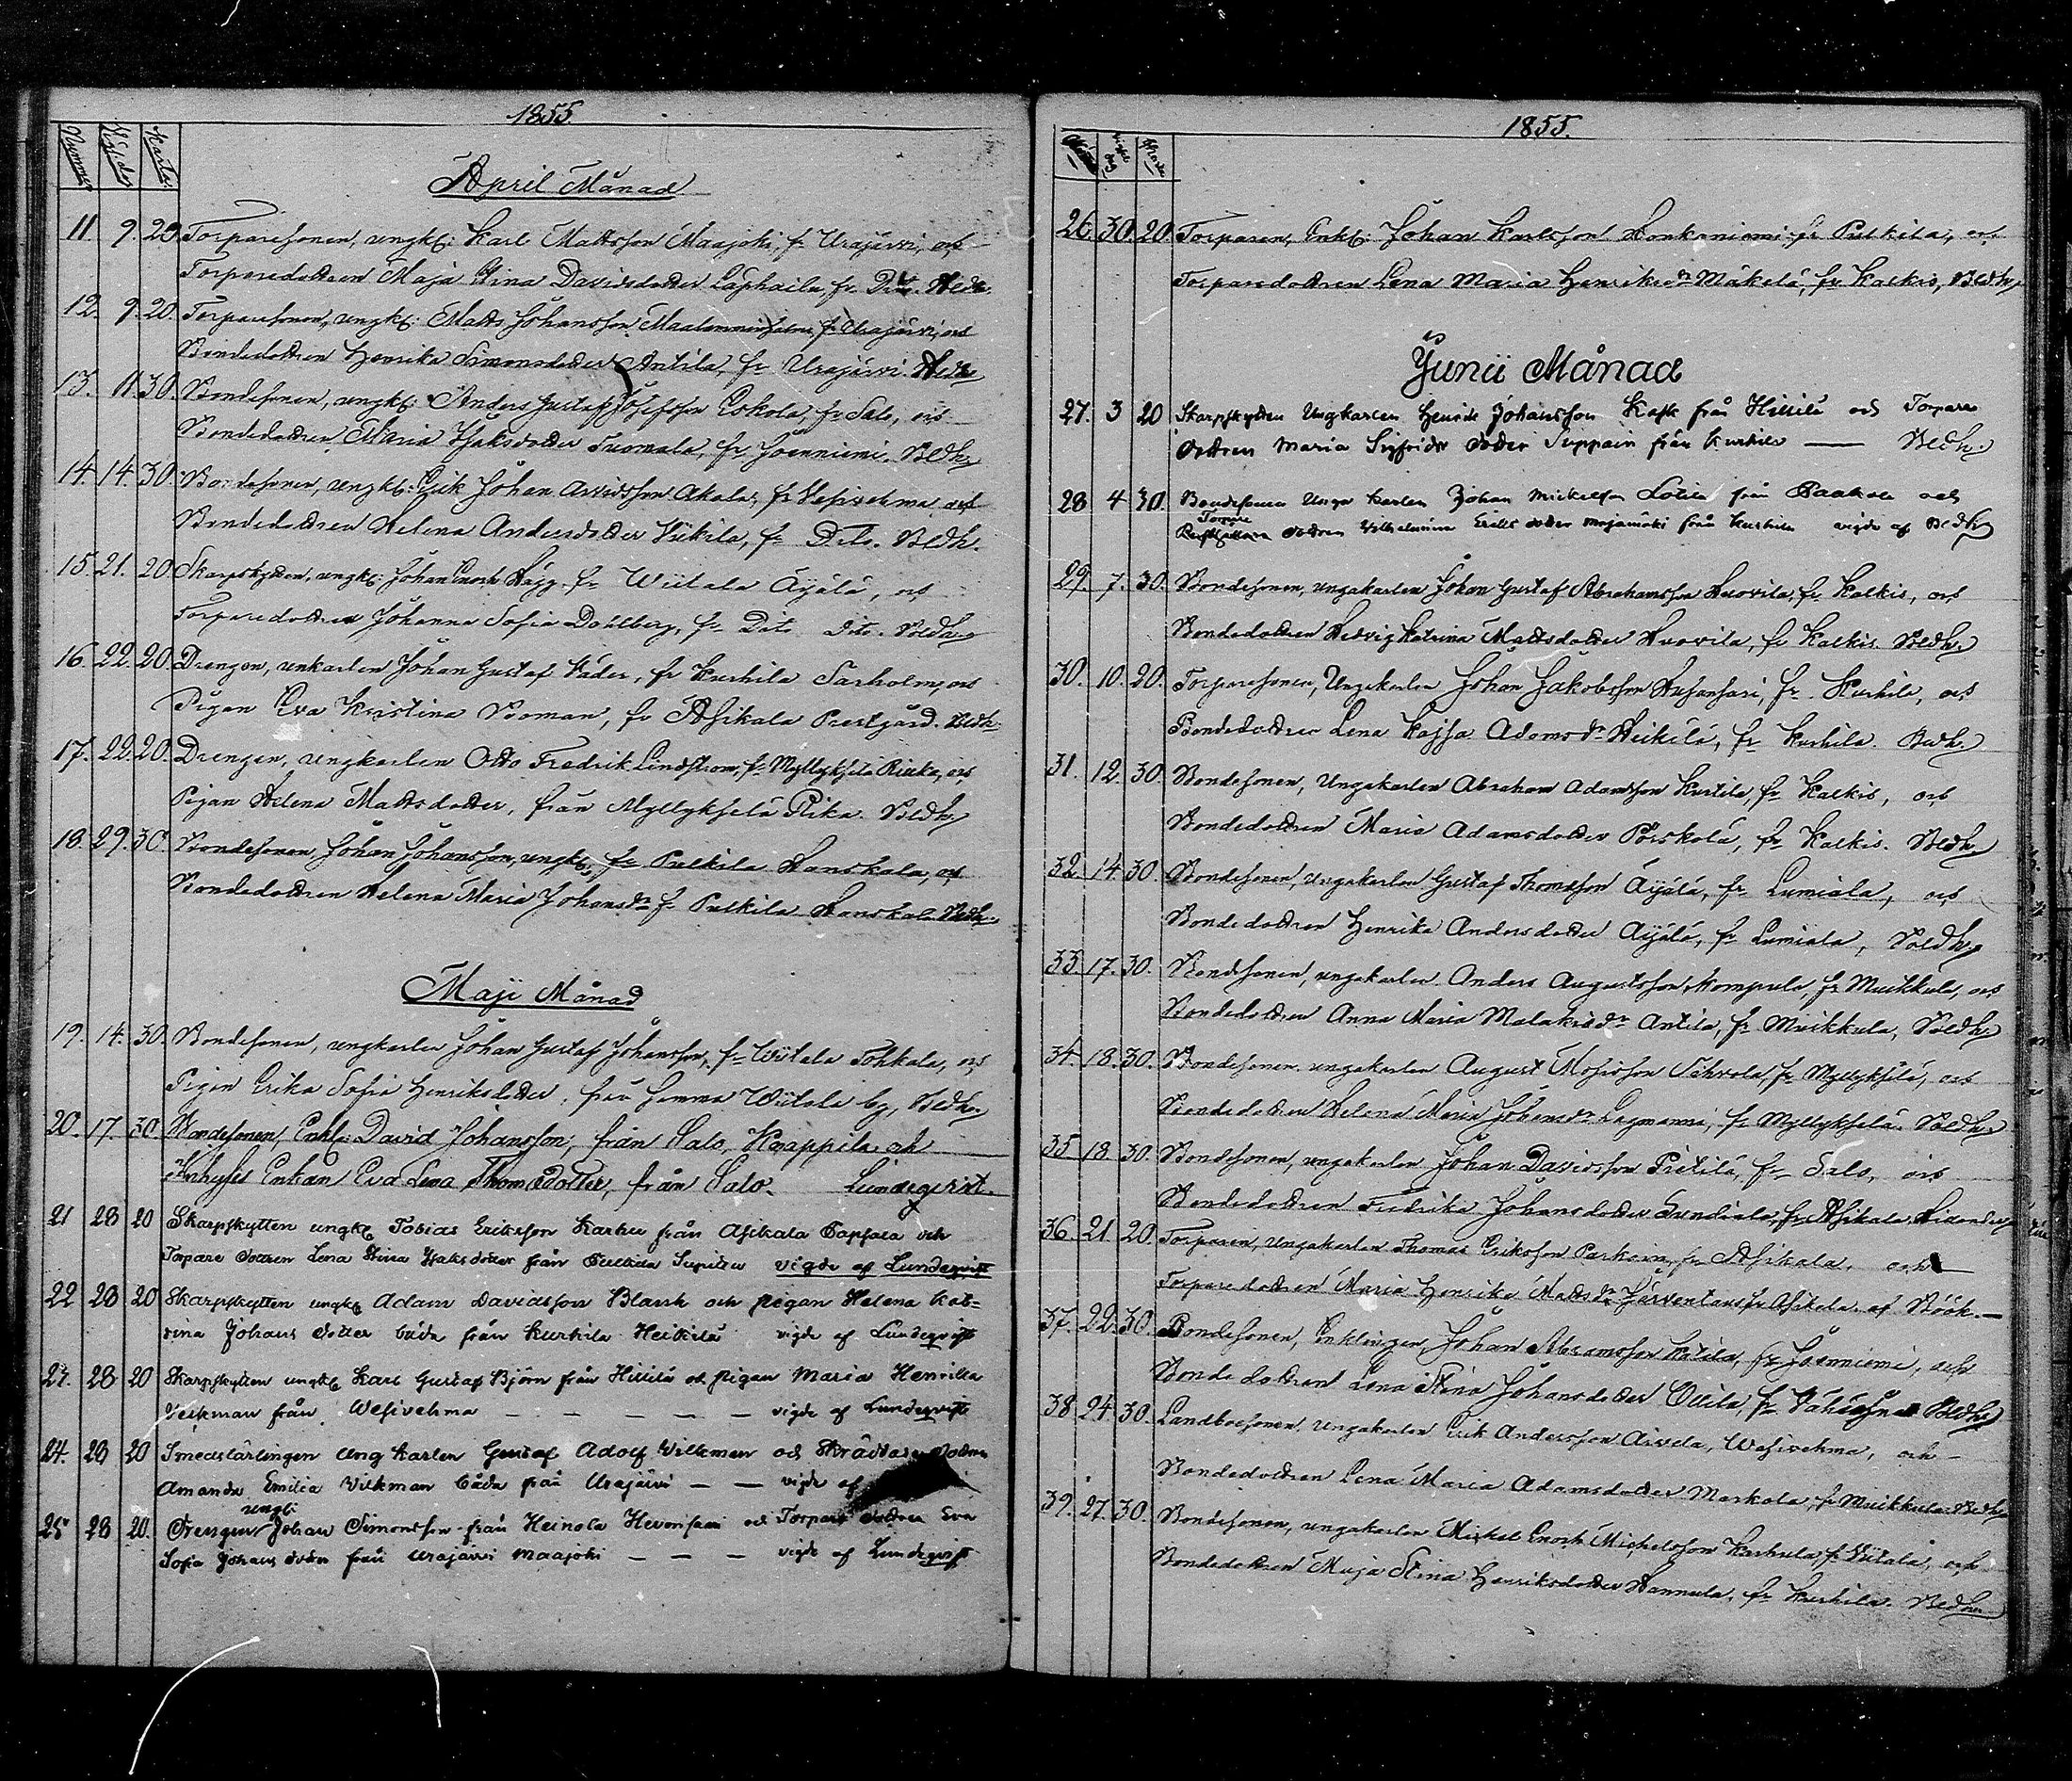 1855.
Nummer Vigs. dag Kart.
April Månad
11. 9. 20. Torparesonen, ungkl: Karl Mattsson Maajoki, fr Urajärvi, och
Torparedottren Maja Stina Davidsdotter fr Dito.
12. 9. 20. Torparesonen, ungkl: Matts Johansson fr Urajärvi, och
Bondedottren Henrika Simonsdotter Antila, fr Urajärvi.
13. 11. 30. Bondesonen, ungkl: Anders Gustaf Josefsson Eskola, fr Salo, och
Bondedottren Maria Isaksdotter Tuomala, fr Joenniemi. Bldhr
14. 14. 30. Bondesonen, ungkl: Erik Johan Arvidsson Akala, fr Vesivehma och
Bondedottren Helena Andersdotter Vikila, fr Dito. Bldhr.
15. 21. 20. Skarpskytten, ungkl: Johan Enoch Hägg, fr Wiitala Äijälä, och
Torparedottren Johanna Sofia Dahlberg, fr Dito Dito. Bldhr
16. 22. 20. Drengen, unkarlen Johan Gustaf Fader, fr Kurhila Sarholm, och
Pigan Eva Kristina Boman, fr Asikala Prestgård. Bldhr
17. 22. 20. Drengen, ungkarlen Otto Fredrik Lindström, fr Myllykselä Riuka, och
Pigan Helena Mattsdotter, från Myllykselä Rika. Bldhr
18. 29. 30. Bondesonen Johan Johansson, ungkl, fr Pulkila Hanskala, och
Bondedottren Helena Maria Johansdr fr Pulkila Hanskala Bldhr
Maji Månad
19. 14. 30. Bondesonen, ungkarlen Johan Gustaf Johansson, fr Wiitala Tohkala, och
Pigan Erika Sofia Henriksdotter, från Wiitala by, Bldhr
20. 17. 30 Bondesonen, Enkl: David Johansson, från Salo, Knappila och
Inhyses Enkan Eva Lena Thomædotter, från Salo. Lundeqvist.
21 28 20 Skarpskytten ungkl Tobias Eriksson Karhu från Asikala och
Torpare dottren Lena Stina Isaksdotter från Pulkila vigde af Lundeqvist
22 28 20 Skarpskytten ungkl Adam Davidsson Blank och pigan Helena Kat-
rina Johans dotter båda från Kurhila Heikilä vigde af Lundeqvist
23. 28 20 Skarpskytten ungkl Karl Gustaf Björn från Hillilä och pigan Maria Henrika
Veikman från Wesivehma — — — — — vigde af Lundeqvist
24. 28 20 Smedslärlingen ung karlen Gustaf Adolf Willkman och Skräddare dottren
Amanda Emilia Vikman båda från Urajärvi — — vigde af
ungk:
25 28 20. Drengen Johan Simonsson från Heinola Hevonsaari och Torpare dottren Eva
Sofia Johans dotter från Urajärvi Maajoki — — — vigde af Lundeqvist
1855.
26. 30. 20 Torparen, Enkl: Johan Karlsson Honkaniemi fr Pulkila, och
Torparedottren Lena Maria Henriksdr Mäkelä, fr Kalkis, Bldhr
Junii Månad
27. 3 20 Skarpskytten Ungkarlen Henrik Johansson Kask från Hillilä och Torpare
dottren Maria Sigfrids dotter Suppain från Kurhila — Bldhr
28 4 30. Bondesonen Unga karlen Johan Mickelsson från och
Torpare
dottren Vilhelmina Eriks dotter från Kurhila vigde af Bldhr
29. 7. 30. Bondesonen, ungakarlen Johan Gustaf Abrahamsson Huovila, fr Kalkis, och
Bondedottren Hedvig Katrina Mattsdotter Huovila, fr Kalkis. Bldhr
30. 10. 20. Torparesonen, Ungakarlen Johan Jakobsson fr. Kurhila, och
Bondedottren Lena Kajsa Adamsdr Heikilä, fr Kurhila. Bldhr.
31. 12. 30. Bondesonen, Ungakarlen Abraham Adamsson Kurtila, fr Kalkis, och
Bondedottren Maria Adamsdotter Pörskälä, fr Kalkis. Bldhr
32. 14. 30. Bondesonen, ungakarlen Gustaf Thomasson Äijälä, fr Lumiala, och
Bondedottren Henrika Andersdotter Äijälä, fr Lumiala, Bldhr
33. 17. 30. Bondesonen, ungakarlen Anders Augustsson Kompula, fr Muikkula, och
Bondedottren Anna Maria Malakisdr Antila, fr Muikkula, Bldhr
34. 18. 30. Bondesonen, ungakarlen August Mosisson fr Myllykselä, och
Bondedottren Helena Maria Johansdr Lagmanni, fr Myllykselä. Bldhr
35 18. 30. Bondesonen, ungakarlen Johan Davidsson Pietilä, fr Salo, och
Bondedottren Fredrika Johansdotter fr Asikala
36. 21. 20. Torparen, Ungakarlen Thomas Eriksson Parkoin, fr Asikala, och
Torparedottren Maria Henrika Mattsdr fr Asikala. af Böök. —
37. 22. 30. Bondesonen, Enklingen, Johan Abramsson Katila, fr Joenniemi, och
Bondedottren Lena Stina Johansdotter Ollila, fr Bldhr
38 24. 30. Landbosonen, ungakarlen Erik Andersson Arvela, Wesivehma, och
Bondedottren Lena Maria Adamsdotter Markola, fr Muikkula. Bldhr
39. 27. 30. Bondesonen, ungakarlen Mickel Enoch Michelsson Karhula, fr Viitala, och
Bondedottren Maja Stina Henriksdotter Hannula, fr Kurhila. Bldhr